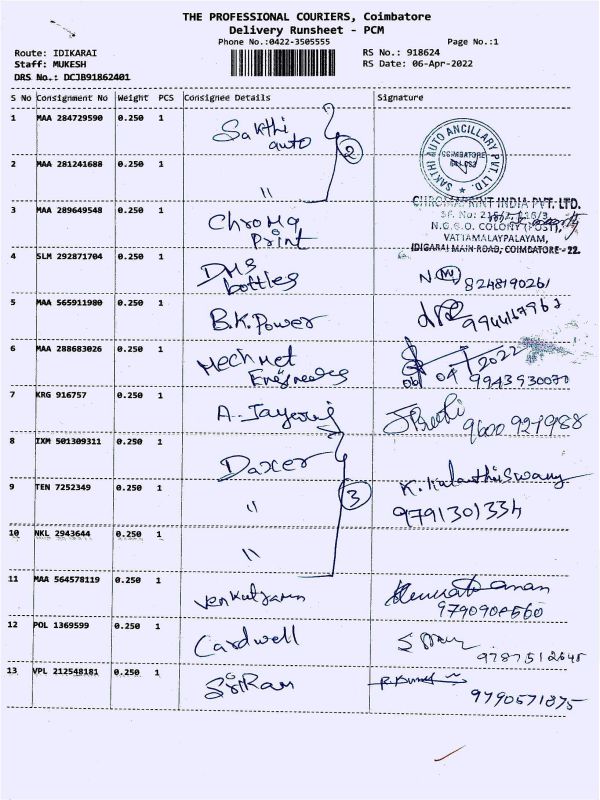 THE PROFESSIONAL COURIERS, Coimbatore
Delivery Runsheet - PCM
Phone No.:0422-3505555 Page No.:1
Route: IDIKARAI RS No.: 918624
Staff: MUKESH RS Date: 06-Apr-2022
DRS No.: DCJB91862401
S No Consignment No Weight PCS Consignee Details Signature
1 MAA 284729590 0.250 1 Sakthi auto
2
COIMBATORE
SAKTHI AUTO ANCILLARY PVT. LTD.
2 MAA 281241688 0.250 1 "
3 MAA 289649548 0.250 1 Chroma Print
CHROMAPRINT INDIA PVT. LTD.
SF. No:
N.G.G.O. COLONY (POST),
VATTAMALAYPALAYAM,
IDIGARAI MAIN ROAD, COIMBATORE - 22.
4 SLM 292871704 0.250 1 DMS bottles 8248190261
5 MAA 565911980 0.250 1 B.K.Power
6 MAA 288683026 0.250 1 Mechmet Engineers
06 04 2022
9943930070
7 KRG 916757 0.250 1 A. 9600929988
8 IXM 501309311 0.250 1 Daxer
3
9 TEN 7252349 0.250 1 "
9791301334
10 NKL 2943644 0.250 1 "
11 MAA 564578119 0.250 1
12 POL 1369599 0.250 1 Cardwell
9787512645
13 VPL 212548181 0.250 1 SriRam
9790571875